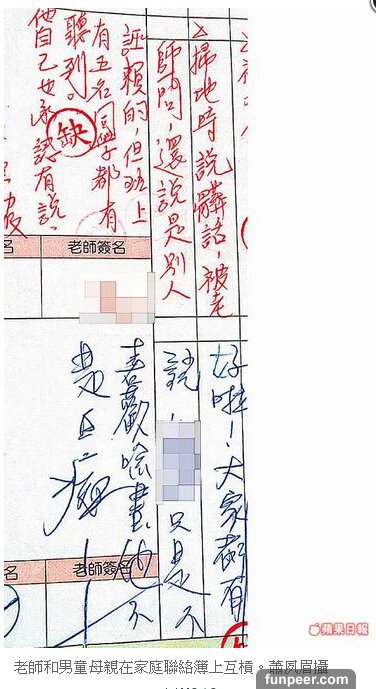 △掃地時說髒話，被老
師問，還說是別人
誣賴的，但班上
有五名同學都有
聽到，
他自己也承認有說。
缺
老師簽名
名
好啦！大家都有
說！只是不
喜歡唸書他不
是白癡！
老師簽名
名
蘋果日報
老師和男童母親在家庭聯絡簿上互槓。蕭夙眉攝